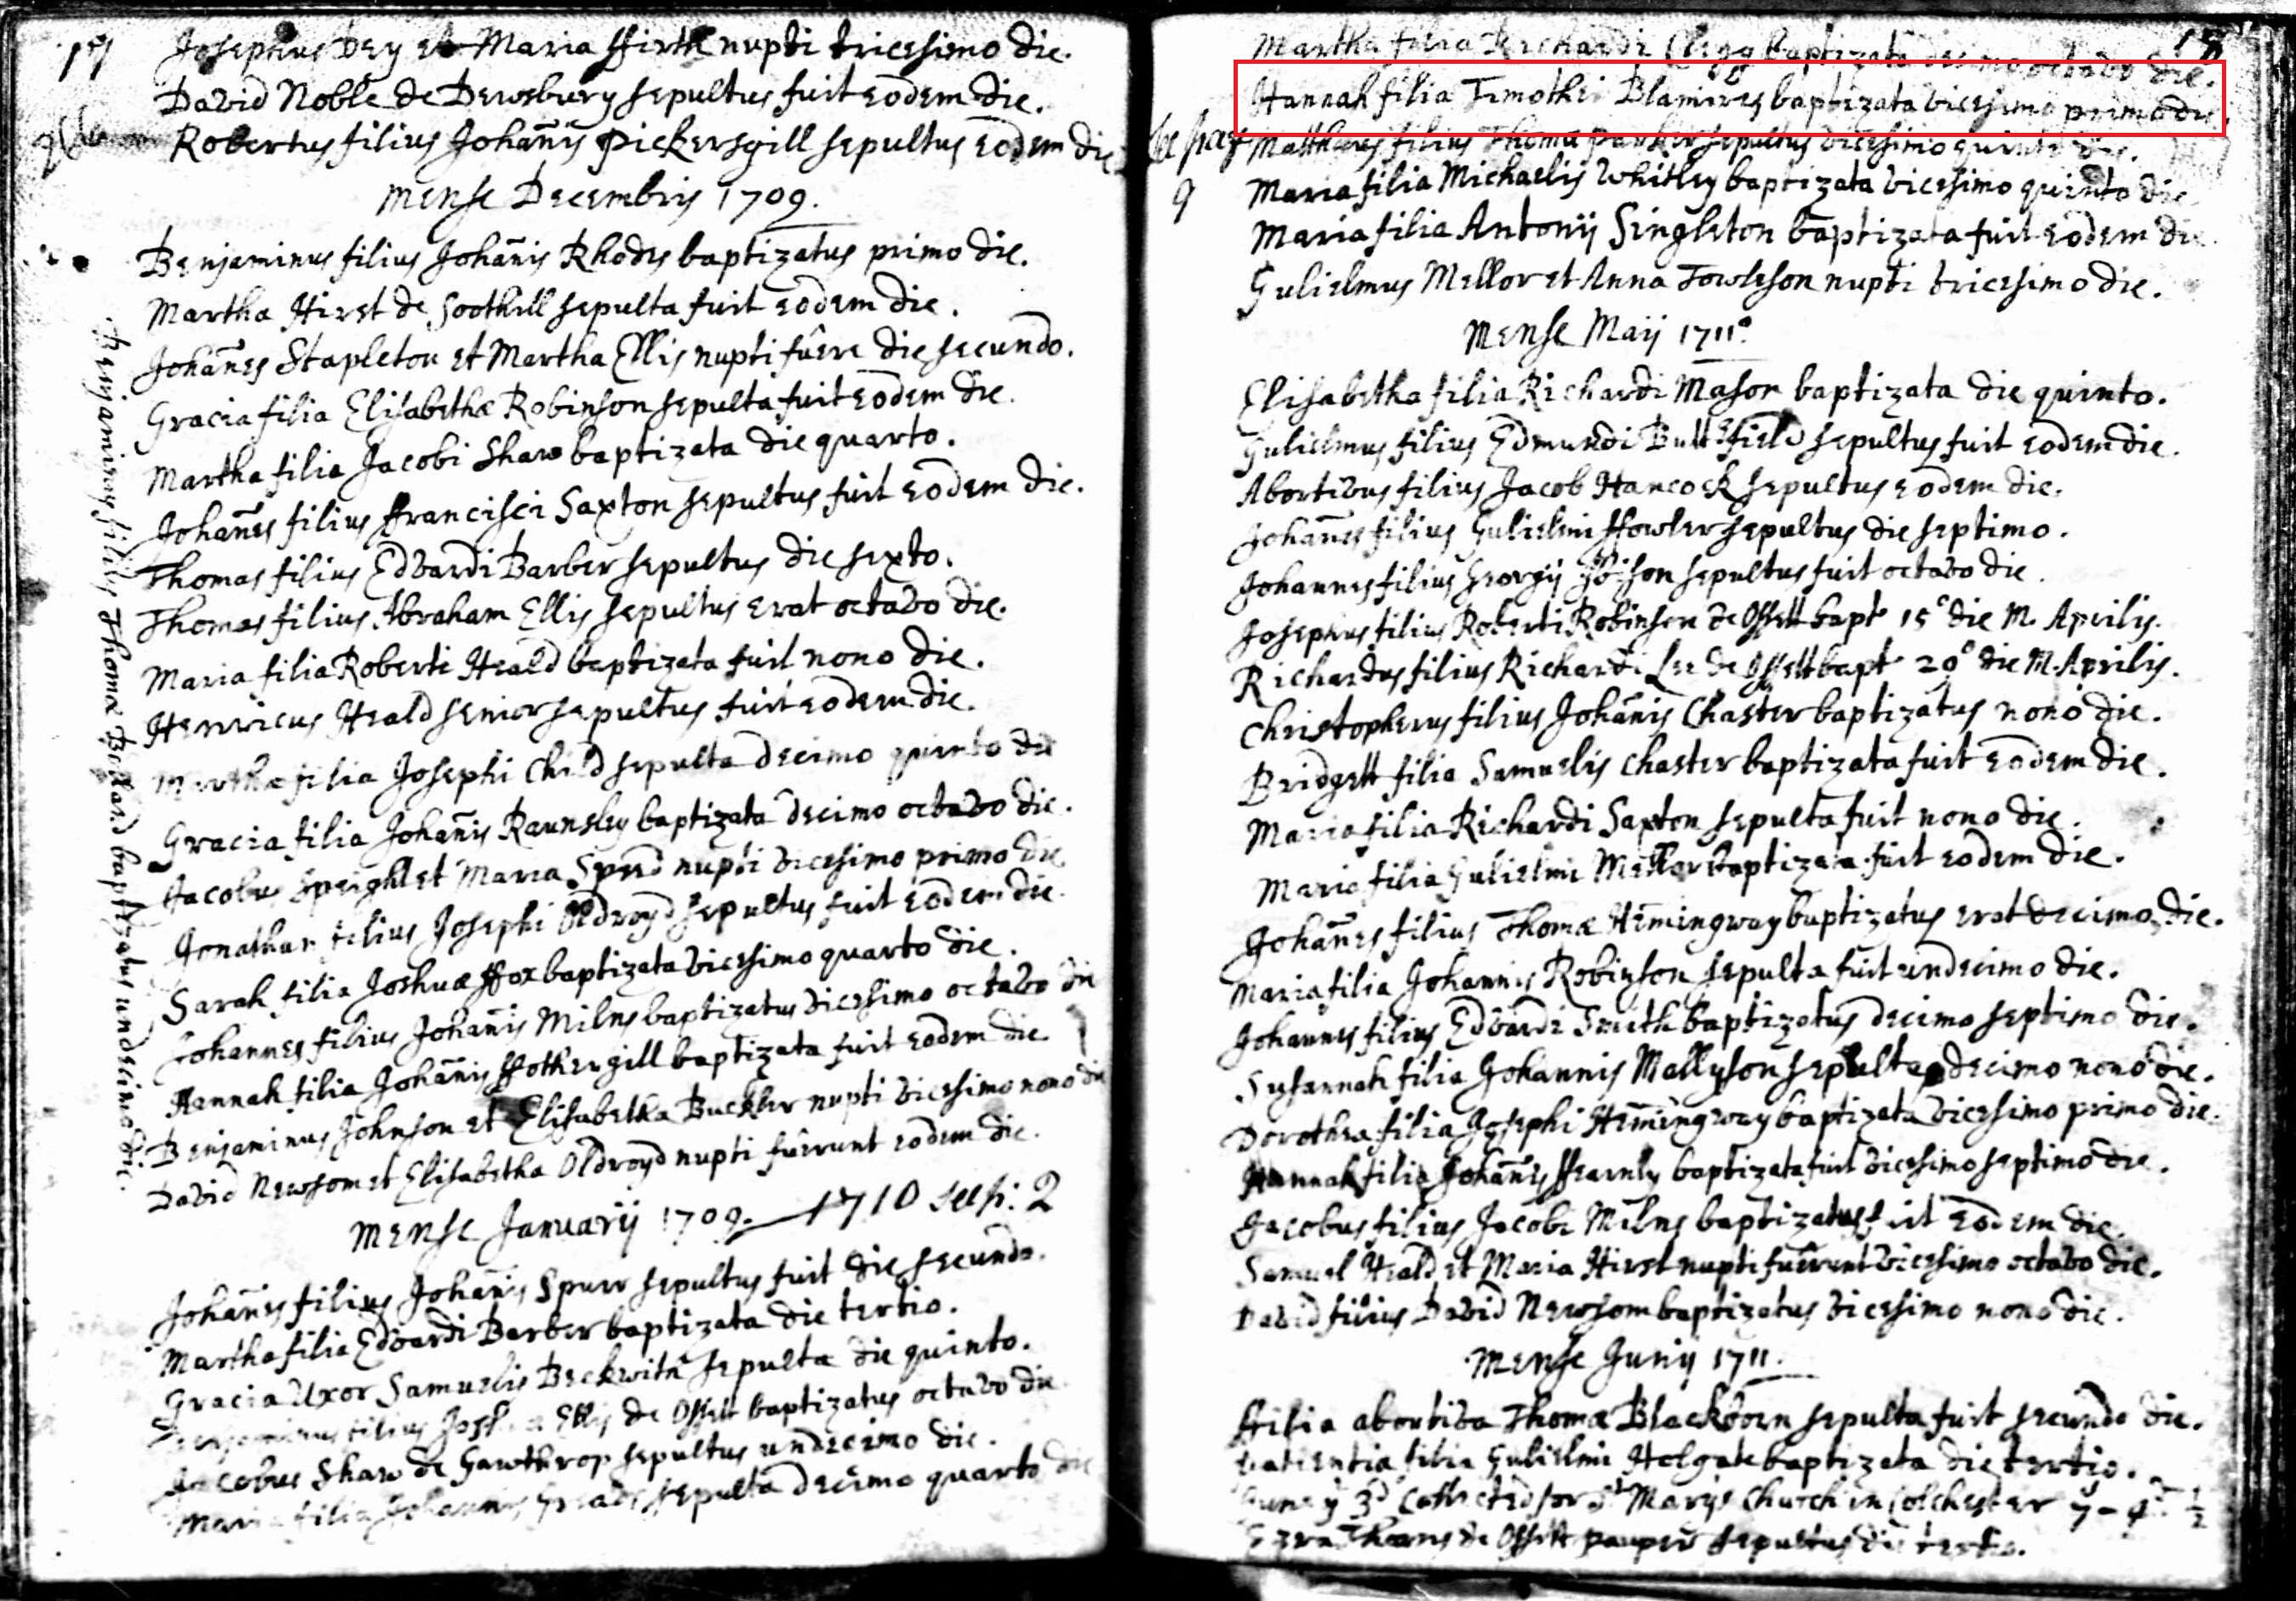 17
Josephus Dey et Maria ffirth nupti tricesimo die.
David Noble de Dewsbury sepultus fuit eodem die.
Robertus filius Johan̄is Pickersgill sepultus eodem die
Mense Decembris 1709.
Benjaminus filius Johan̄is Rhodes baptizatus primo die.
Martha Hirst de Soothill sepulta fuit eodem die.
Johan̄es Stapleton et Martha Ellis nupti fûere die secundo.
Gracia filia Elisabethæ Robinson sepulta fuit eodem die.
Martha filia Jacobi Shaw baptizata die quarto.
Johan̄es filius ffrancisci Saxton sepultus fuit eodem die.
Thomas filius Edvardi Barber sepultus die sexto.
Thomas filius Abraham Ellis sepultus erat octavo die.
Maria filia Roberti Heald baptizata fuit nono die.
Henricus Heald senior sepultus fuit eodem die.
Martha filia Josephi Child sepulta decimo quinto die
Gracia filia Johan̄is Raunsley baptizata decimo octavo die.
Jacobus Speight et Maria Speed nupti vicesimo primo die
Jonathan filius Josephi Oldroyd sepultus fuit eodem die.
Sarah filia Joshuæ ffox baptizata vicesimo quarto die.
Johannes filius Johan̄is Milns baptizatus vicesimo octavo die
Hannah filia Johan̄is ffothergill baptizata fuit eodem die.
Benjaminus Johnson et Elisabetha Buckler nupti vicesimo nono die
David Newsom et Elisabetha Oldroyd nupti fûerunt eodem die.
Benjaminus filius Thomæ Bolland baptizatus undecimo die.
Mense Januarij 1709. — 1710
Johan̄es filius Johan̄is Spurr sepultus fuit die secundo.
Martha filia Edvardi Barber baptizata die tertio.
Gracia Uxor Samuelis Beckwith sepulta die quinto.
filius Ellis de Ossett baptizatus octavo die
Jacobus Shaw de Gawthrop sepultus undecimo die.
Maria filia Johannis sepulta decimo quarto die
Martha filia Richardi Clegg baptizata decimo octavo die.
Hannah filia Timothei Blamires baptizata vicesimo primo die.
Mattheus filius Thomæ Parker sepultus vicesimo quinto die.
9
Maria filia Michaelis Whitley baptizata vicesimo quinto die
Maria filia Antonij Singleton baptizata fuit eodem die
Gulielmus Mellor et Anna Towleson nupti tricesimo die.
Mense Maij 1711º.
Elisabetha filia Richardi Mason baptizata die quinto.
Gulielmus filius Edmundi Butterfield sepultus fuit eodem die.
Abortivus filius Jacob Hancock sepultus eodem die.
Johan̄es filius Gulielmi ffowler sepultus die septimo.
Johannes filius Georgij sepultus fuit octavo die.
Josephus filius Roberti Robinson de Ossett bapt 15º die M. Aprilis.
Richardus filius Richardi Lee de Ossett bapt 20º die M. Aprilis.
Christopherus filius Johan̄is Chaster baptizatus nono die.
Bridgett filia Samuelis Chaster baptizata fuit eodem die.
Maria filia Richardi Saxton sepulta fuit nono die.
Maria filia Gulielmi Mellor baptizata fuit eodem die.
Johan̄es filius Thomæ Hemingway baptizatus erat decimo die.
Maria filia Johannis Robinson sepulta fuit undecimo die.
Johannes filius Edvardi Smith baptizatus decimo septimo die.
Susannah filia Johannis Mallyson sepulta decimo nono die.
Dorothea filia Josephi Hem̄ingway baptizata vicesimo primo die.
Hannah filia Johan̄is ffearnly baptizata fuit vicesimo septimo die.
Jacobus filius Jacobi Milns baptizatus fuit eodem die.
Samuel Heald et Maria Hirst nupti fuêrunt vicesimo octavo die.
David filius David Newsom baptizatus vicesimo nono die.
Mense Junij 1711.
ffilia abortiva Thomæ Blackborn sepulta fuit secundo die.
Patientia filia Gulielmi Holgate baptizata die tertio.
June ye 3d Collected for St Marys Church in Colchester 7 – 4 ½
Ezra Thorns de Ossett pauper sepultus die tertio.